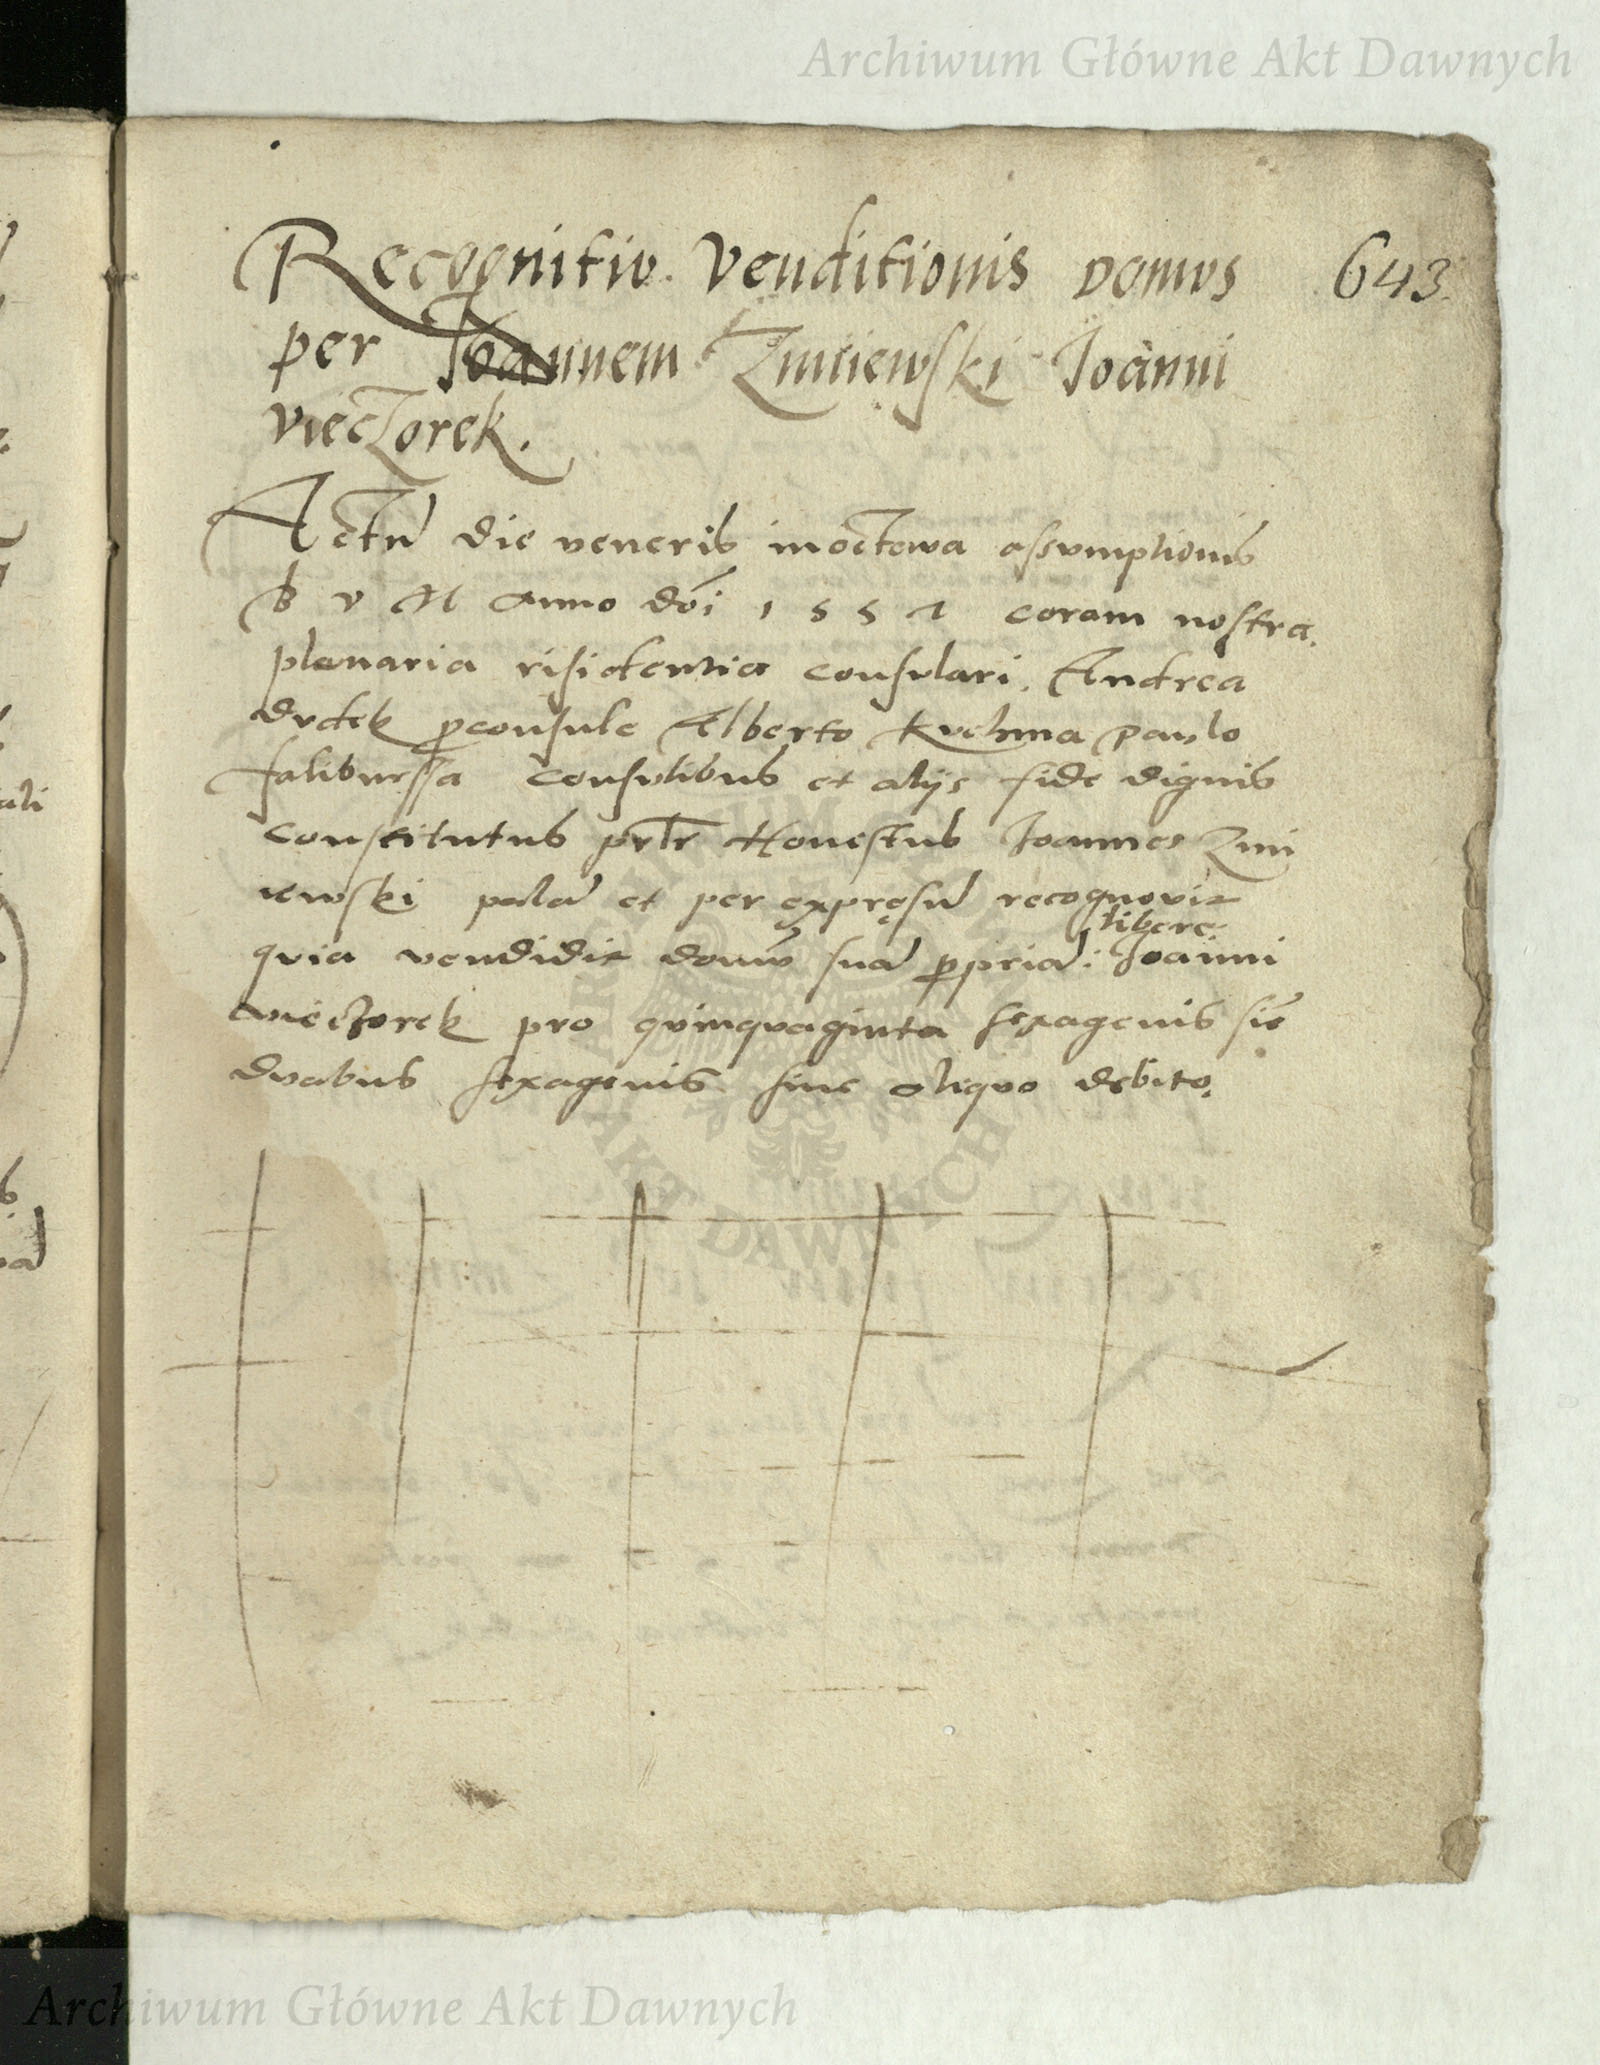 Archiwum Główne Akt Dawnych
Recognitio venditionis domus 643.
per Ioannem Zmiiewski Ioanni
vieczorek.
Actũ die veneris in octowa assumptionis
b v M anno dñi 1551 coram nostra
plenaria risidentia consulari, Andrea
dudek pconsule Alberto Kuchma Paulo
consulibus et alijs fide dignis
constitutus prłr Honestus Ioannes Zmi
iewski palã et per expręsũ recognovit
libere
quia vendidit domũ suã ppriã: Ioanni
wieczorek pro quinquaginta sexagenis sie
duabus sexagenis sine aliquo debito.
ARCHIWUM GŁÓWNE AKT DAWNYCH
Archiwum Główne Akt Dawnych